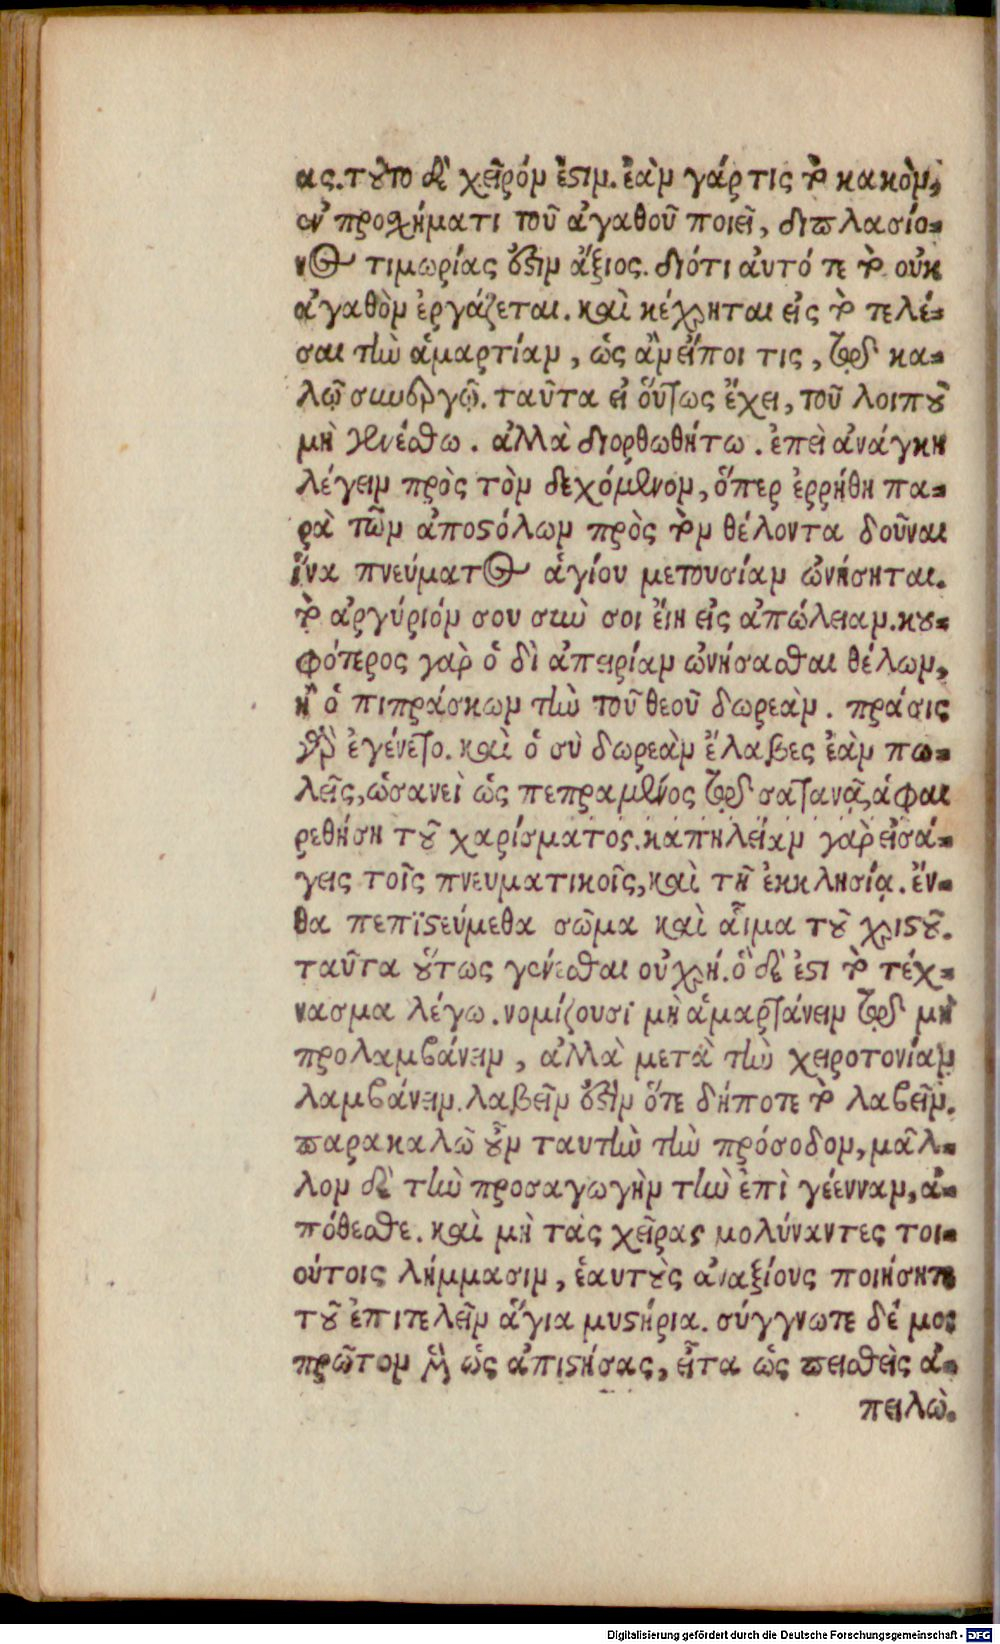 ας. τοῦτο δὲ χεῖρόν ἐστιν. ἐὰν γάρ τις τὸ κακὸν,
ἐν προσχήματι τοῦ ἀγαθοῦ ποιεῖ, διπλασίο-
νος τιμωρίας ἐστὶν ἄξιος. διότι αὐτό τε τὸ οὐκ
ἀγαθὸν ἐργάζεται. καὶ κέχρηται εἰς τὸ τελέ-
σαι τὴν ἁμαρτίαν, ὡς ἂν εἴποι τις, τῷ κα-
λῷ συνεργῷ. ταῦτα εἰ οὕτως ἔχει, τοῦ λοιποῦ
μὴ γινέσθω. ἀλλὰ διορθωθήτω. ἐπεὶ ἀνάγκη
λέγειν πρὸς τὸν δεχόμενον, ὅπερ ἐρρήθη πα-
ρὰ τῶν ἀποστόλων πρὸς τὸν θέλοντα δοῦναι
ἵνα πνεύματος ἁγίου μετουσίαν ὠνήσηται.
τὸ ἀργύριόν σου σὺν σοὶ εἴη εἰς ἀπώλειαν. κου-
φότερος γὰρ ὁ δι ἀπειρίαν ὠνήσασθαι θέλων,
ἢ ὁ πιπράσκων τὴν τοῦ θεοῦ δωρεὰν. πράσις
γὰρ ἐγένετο. καὶ ὁ σὺ δωρεὰν ἔλαβες ἐὰν πω-
λεῖς, ὡσανεὶ ὡς πεπραμένος τῷ σατανᾷ, ἀφαι
ρεθήσῃ τοῦ χαρίσματος. καπηλείαν γὰρ εἰσά-
γεις τοῖς πνευματικοῖς, καὶ τῇ ἐκκλησίᾳ. ἔν-
θα πεπϊστεύμεθα σῶμα καὶ αἷμα τοῦ χριστοῦ.
ταῦτα οὕτως γενέσθαι οὐ χρή. ὃ δὲ ἐστι τὸ τέχ-
νασμα λέγω. νομίζουσι μὴ ἁμαρτάνειν τῷ μὴ
προλαμβάνειν, ἀλλὰ μετὰ τὴν χειροτονίαν
λαμβάνειν. λαβεῖν ἐστὶν ὅτε δήποτε τὸ λαβεῖν.
παρακαλῶ οὖν ταυτὴν τὴν πρόσοδον, μᾶλ-
λον δὲ τὴν προσαγωγὴν τὴν ἐπὶ γέενναν, ἀ-
πόθεσθε. καὶ μὴ τὰς χεῖρας μολύναντες τοι-
ούτοις λήμμασιν, ἑαυτοὺς ἀναξίους ποιήσητε
τοῦ ἐπιτελεῖν ἅγια μυστήρια. σύγγνωτε δέ μοι
πρῶτον μὲν ὡς ἀπιστήσας, εἶτα ὡς πεισθεὶς ἀ-
πειλῶ.
Digitalisierung gefördert durch die Deutsche Forschungsgemeinschaft - DFG